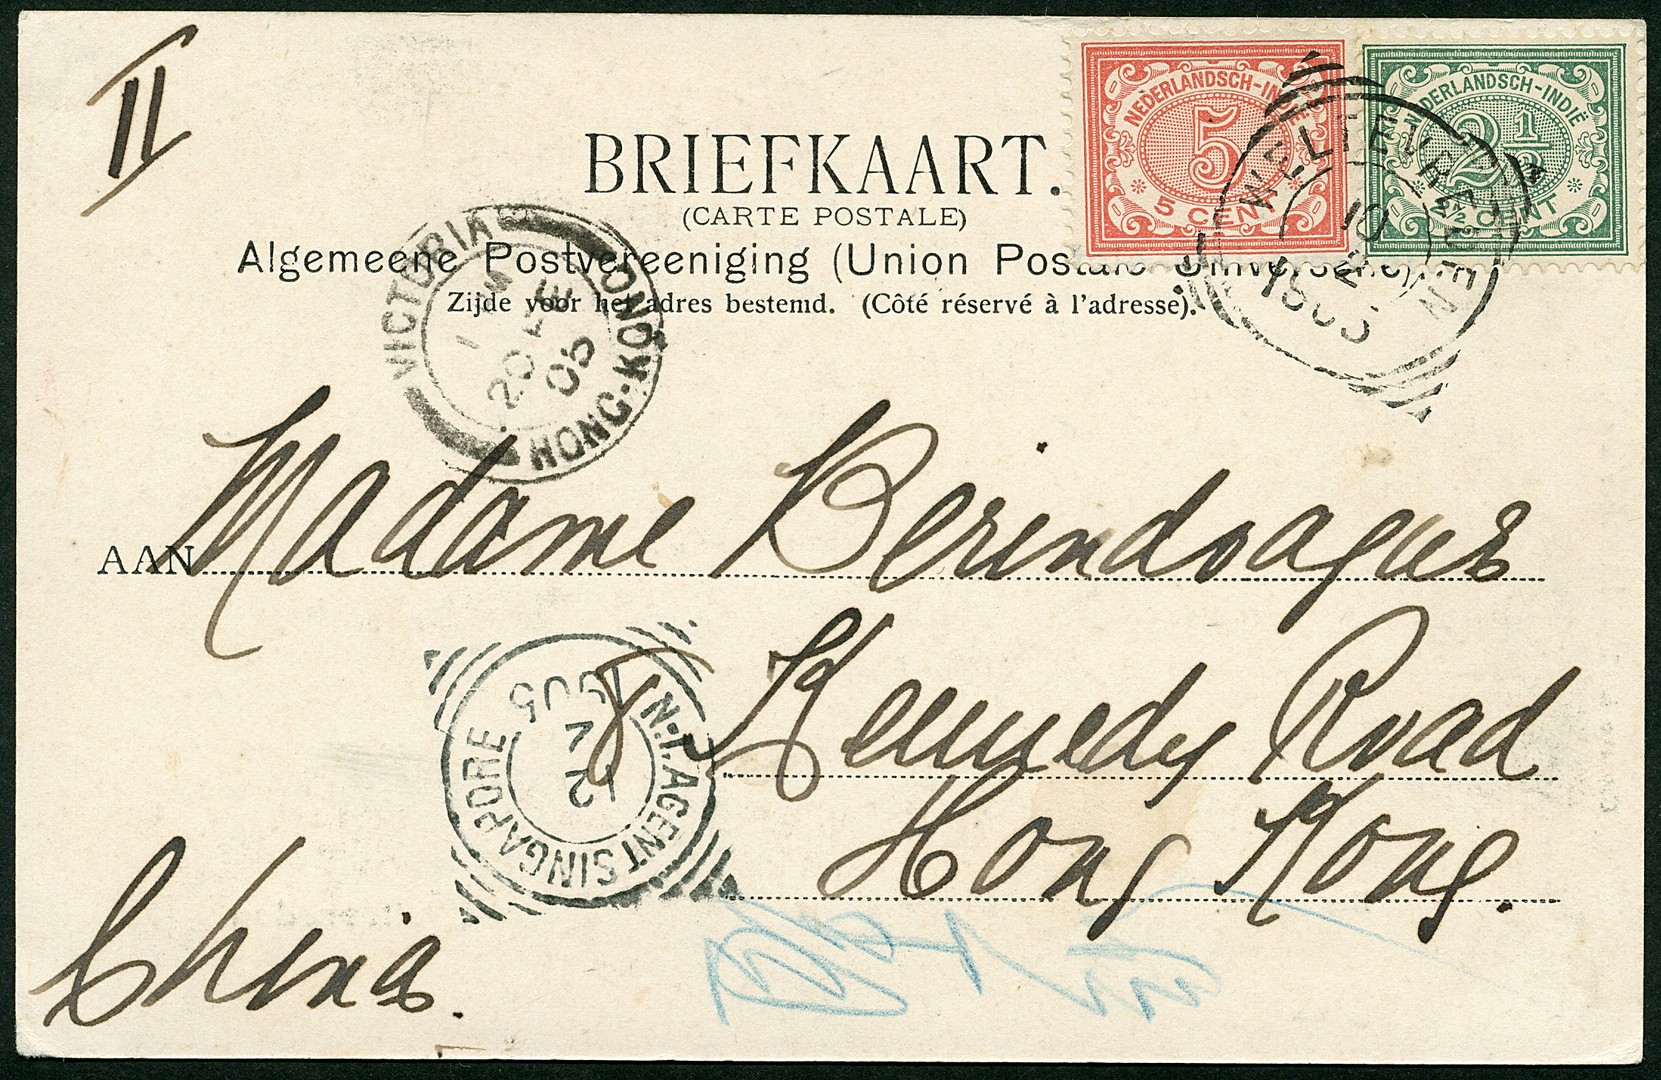 II
BRIEFKAART.
(CARTE POSTALE)
Algemeene Postvereeniging (Union Postale Universelle)
Zijde voor het adres bestemd. (Côté réservé à l'adresse).
NEDERLANDSCH-INDIË
5
5 CENT
NEDERLANDSCH-INDIË
2½
2½ CENT
WELTEVREDEN
10
2
1905
VICTORIA
HONG-KONG
20 FE
05
AAN Madame
Kennedy Road
Hong Kong.
China.
N.I. AGENT SINGAPORE
12
1905